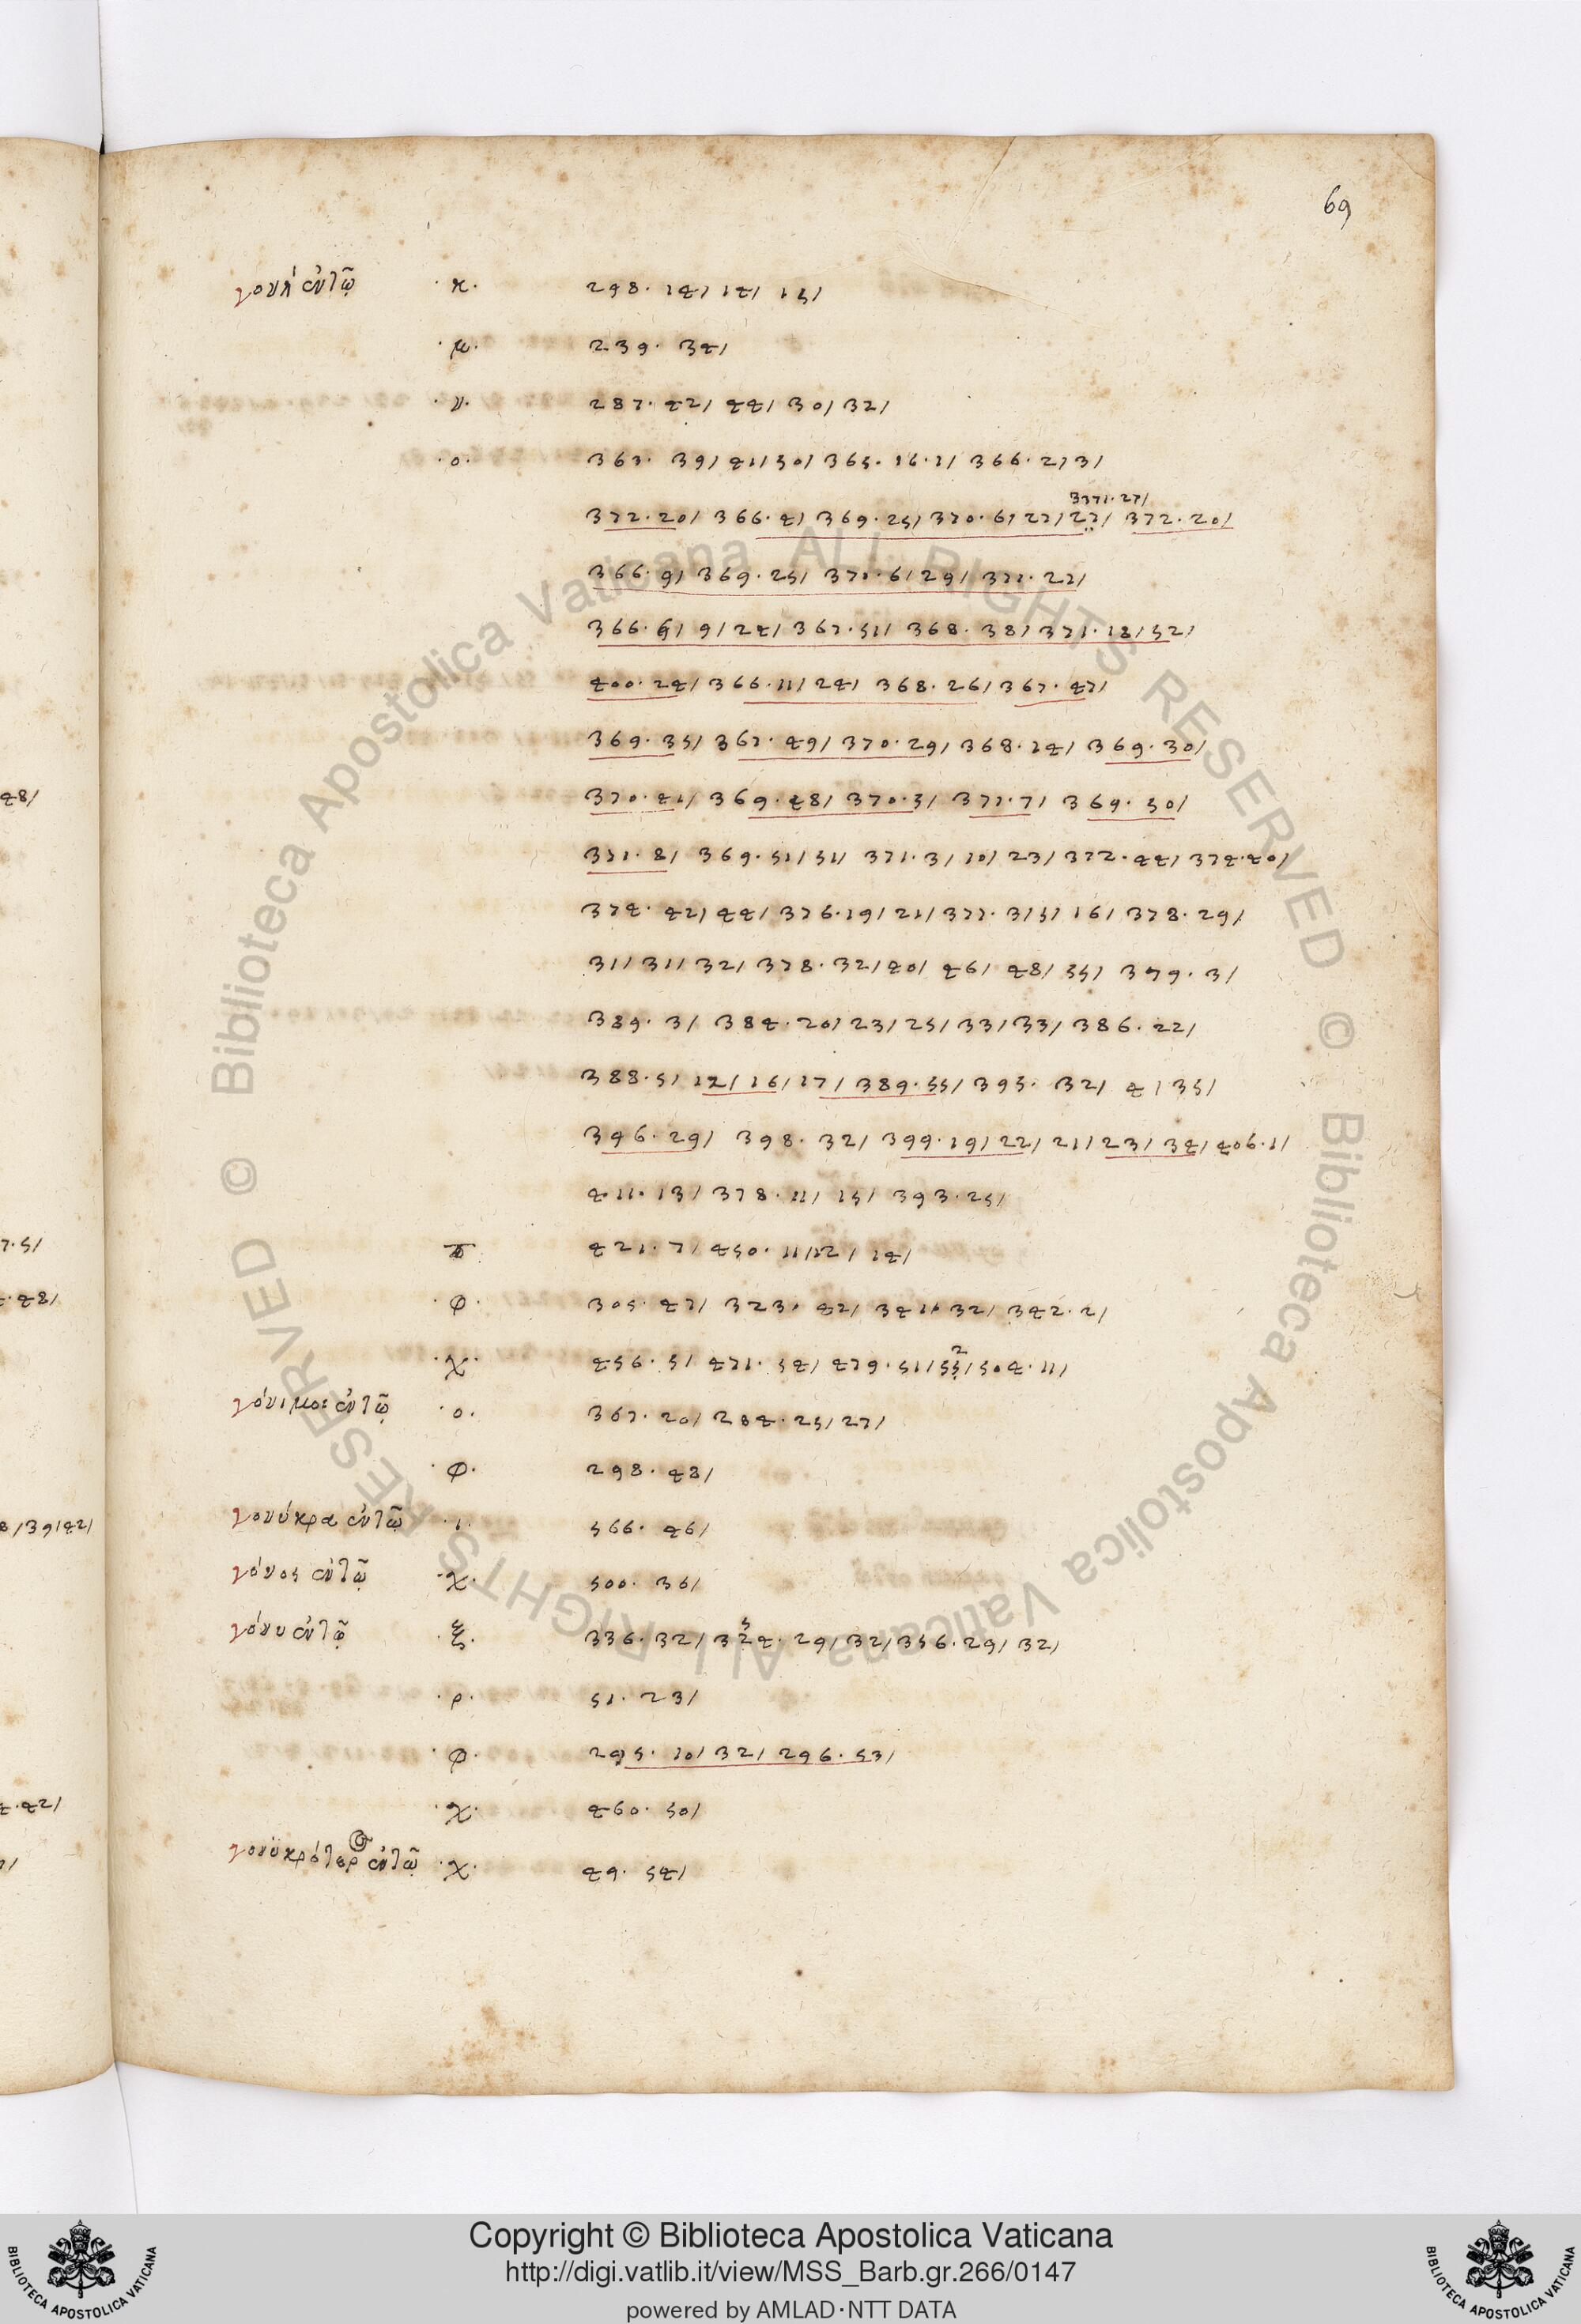 69
γονὴ ἐν τῷ ·κ· 298. 14/ 14/ 15/
·μ· 239. 34/
·ν· 287. 42/ 44/ 30/ 32/
·ο· 363. 39/ 41/ 50/ 365. 16. 1/ 366. 2/ 3/
3371. 27/
372. 20/ 366. 4/ 369. 25/ 370. 6/ 27/ 27/ 372. 20/
366. 9/ 369. 25/ 370. 6/ 29/ 371. 27/
366. 6/ 9/ 24/ 367. 51/ 368. 38/ 371. 18/ 52/
400. 24/ 366. 11/ 24/ 368. 26/ 367. 47/
369. 35/ 367. 49/ 370. 29/ 368. 14/ 369. 30/
370. 41/ 369. 48/ 370. 5/ 377. 7/ 369. 50/
371. 8/ 369. 51/ 51/ 371. 3/ 10/ 23/ 372. 44/ 374. 40/
374. 42/ 44/ 376. 19/ 21/ 377. 3/ 5/ 16/ 378. 29/
31/ 31/ 32/ 378. 32/ 40/ 46/ 48/ 55/ 379. 3/
389. 3/ 384. 20/ 23/ 25/ 33/ 33/ 386. 22/
388. 5/ 12/ 16/ 17/ 389. 55/ 395. 32/ 4/ 35/
396. 29/ 398. 32/ 399. 19/ 22/ 21/ 23/ 34/ 406. 1/
411. 13/ 378. 11/ 15/ 393. 25/
421. 7/ 450. 11/ 12/ 14/
·φ· 305. 47/ 323. 42/ 341. 32/ 342. 2/
2
·χ· 456. 5/ 471. 54/ 479. 51/ 55/ 504. 11/
γόνιμος ἐν τῷ ·ο· 367. 20/ 284. 25/ 27/
·φ· 298. 48/
γονύκρα ἐν τῷ ·ι· 566. 46/
γόνος ἐν τῷ ·χ· 500. 36/
5
γόνυ ἐν τῷ ·ξ· 336. 32/ 324. 29/ 32/ 356. 29/ 32/
·ρ· 51. 23/
·φ· 295. 10/ 32/ 296. 53/
·χ· 460. 50/
γονυκρότερ ἐν τῷ ·χ· 49. 54/
© Biblioteca Apostolica Vaticana ALL RIGHTS RESERVED © Biblioteca Apostolica Vaticana ALL RIGHTS RESERVED
Copyright © Biblioteca Apostolica Vaticana
http://digi.vatlib.it/view/MSS_Barb.gr.266/0147
powered by AMLAD·NTT DATA
BIBLIOTECA APOSTOLICA VATICANA
BIBLIOTECA APOSTOLICA VATICANA